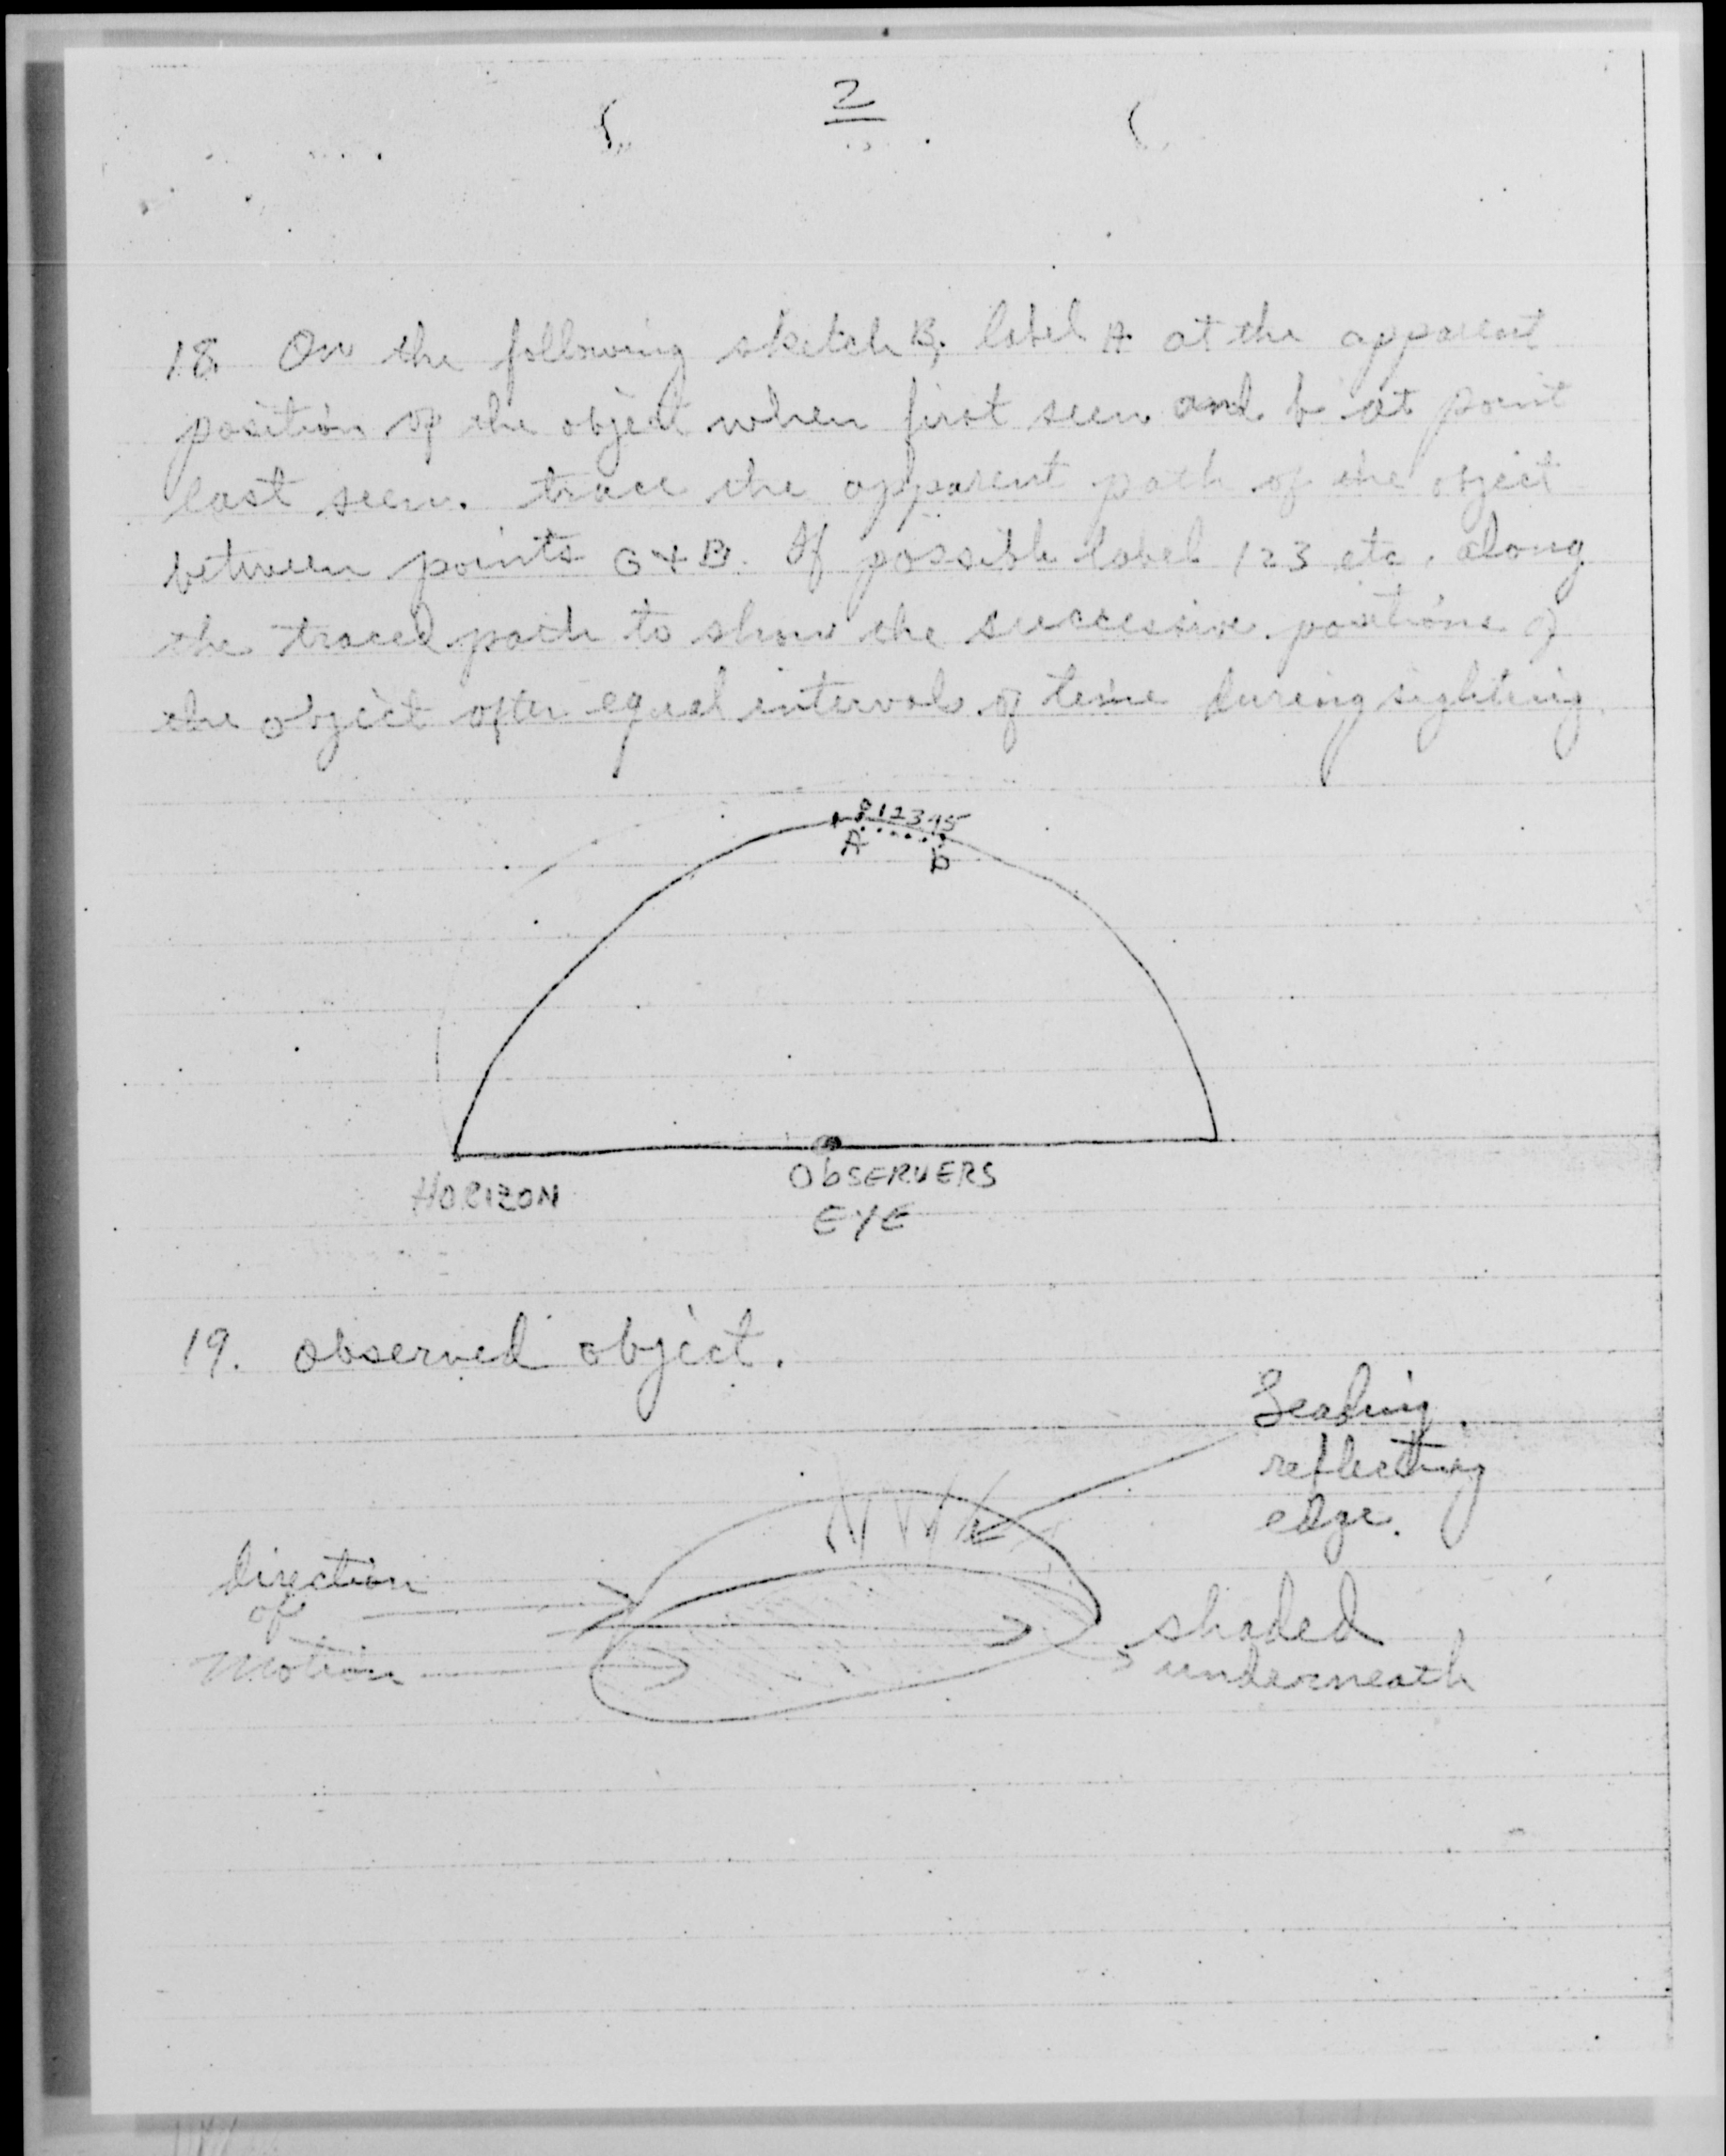 2
18. On the following sketch B, label A at the apparent
position of the object when first seen and b at point
last seen. trace the apparent path of the object
between points G + B. If possible label 123 etc. along
the traced path to show the successive positions of
the object after equal intervals of time during sighting.
0 1 2 3 4 5
A
b
HORIZON
ObSERVERS
EYE
19. observed object.
Leading
reflecting
edge.
direction
of
motion
shaded
underneath